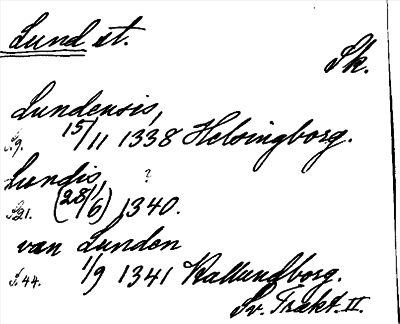 Lund st.
Sk.
Lundensis,
S.9. 15/11 1338 Helsingborg.
Lundis, ?
S.21. (28/6) 1340.
van Lunden
S.44. 1/9 1341 Kallundborg.
Sv. Trakt. II.